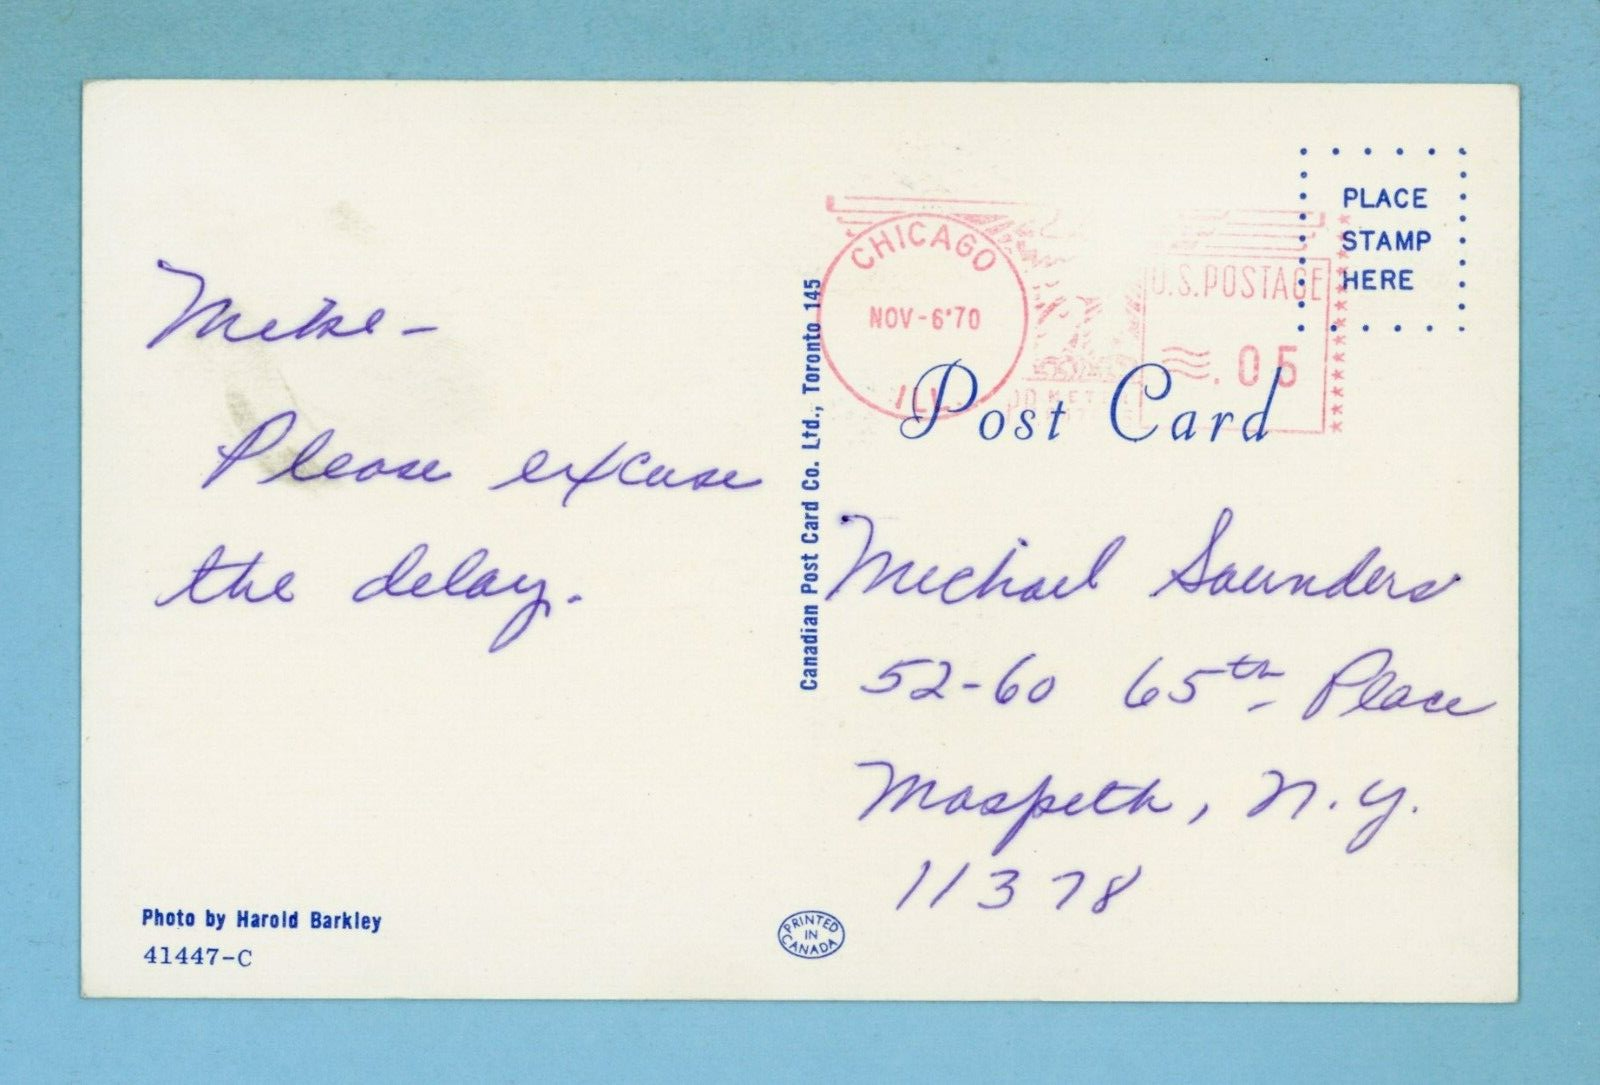 Mike-
Please excuse
the delay.
Photo by Harold Barkley
41447-C
Canadian Post Card Co. Ltd., Toronto 145
PRINTED
IN
CANADA
CHICAGO
NOV-6'70
ILL.
U.S. POSTAGE
.05
PLACE
STAMP
HERE
Post Card
Michael Saunders
52-60 65th Place
Maspeth, N.Y.
11378